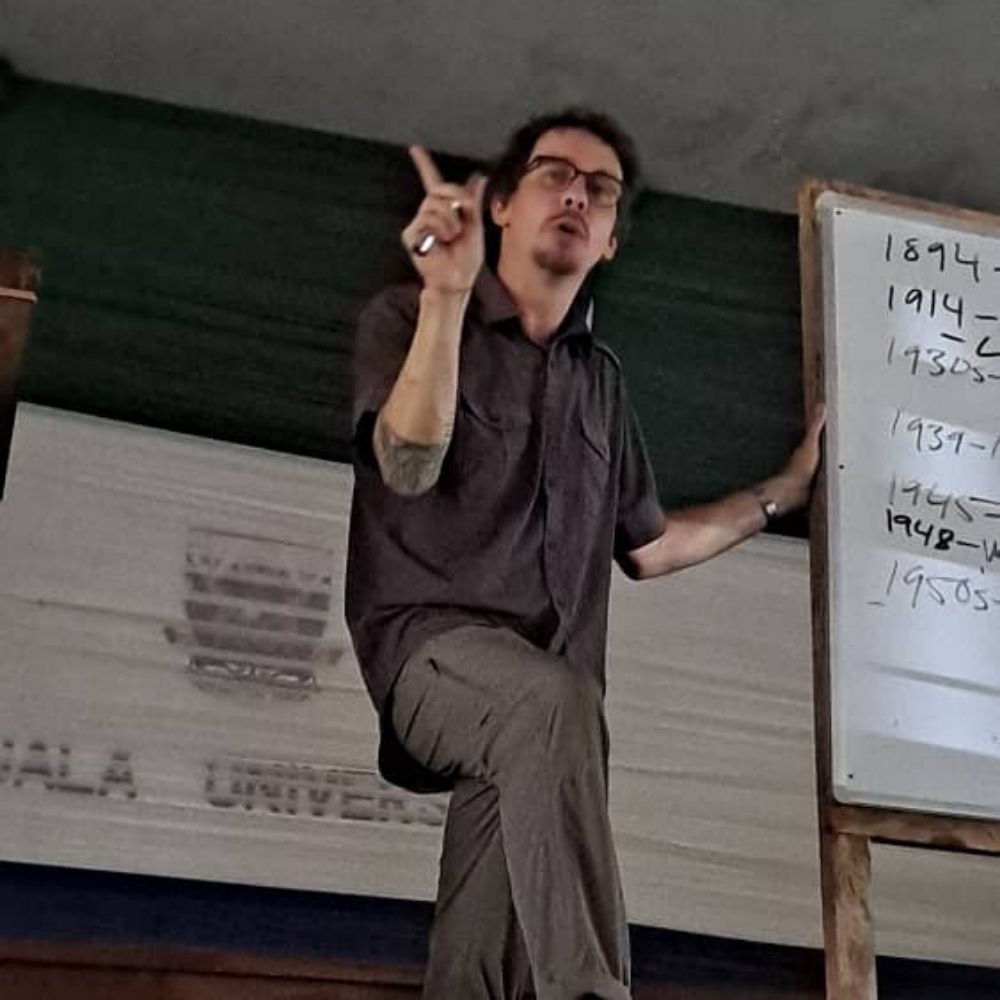 1894-
1914-
1930s-
1939-1
1945-
1948-W
1950s-
UALA UNIVERS